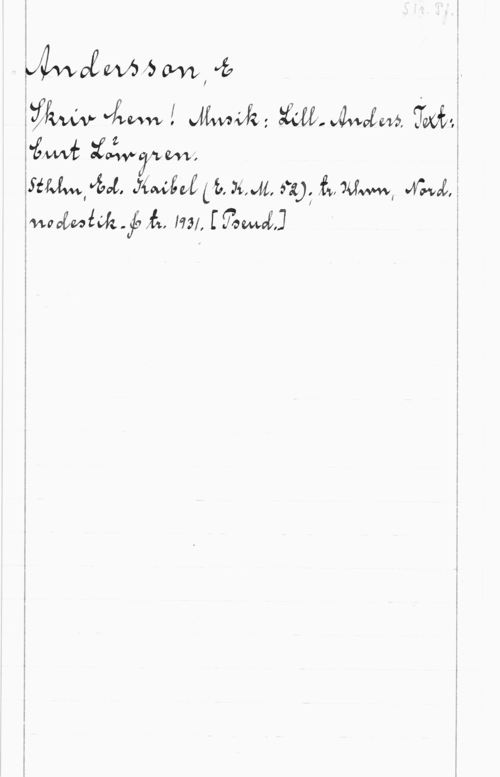 Andersson, E
Skriv hem! Musik: Lill-Anders. Text:
Curt Löwgren.
Sthlm, Ed. Kaibel (E.K.M. 52); tr. Khvn, Nord.
nodestik- & tr. 1931. [Pseud.]